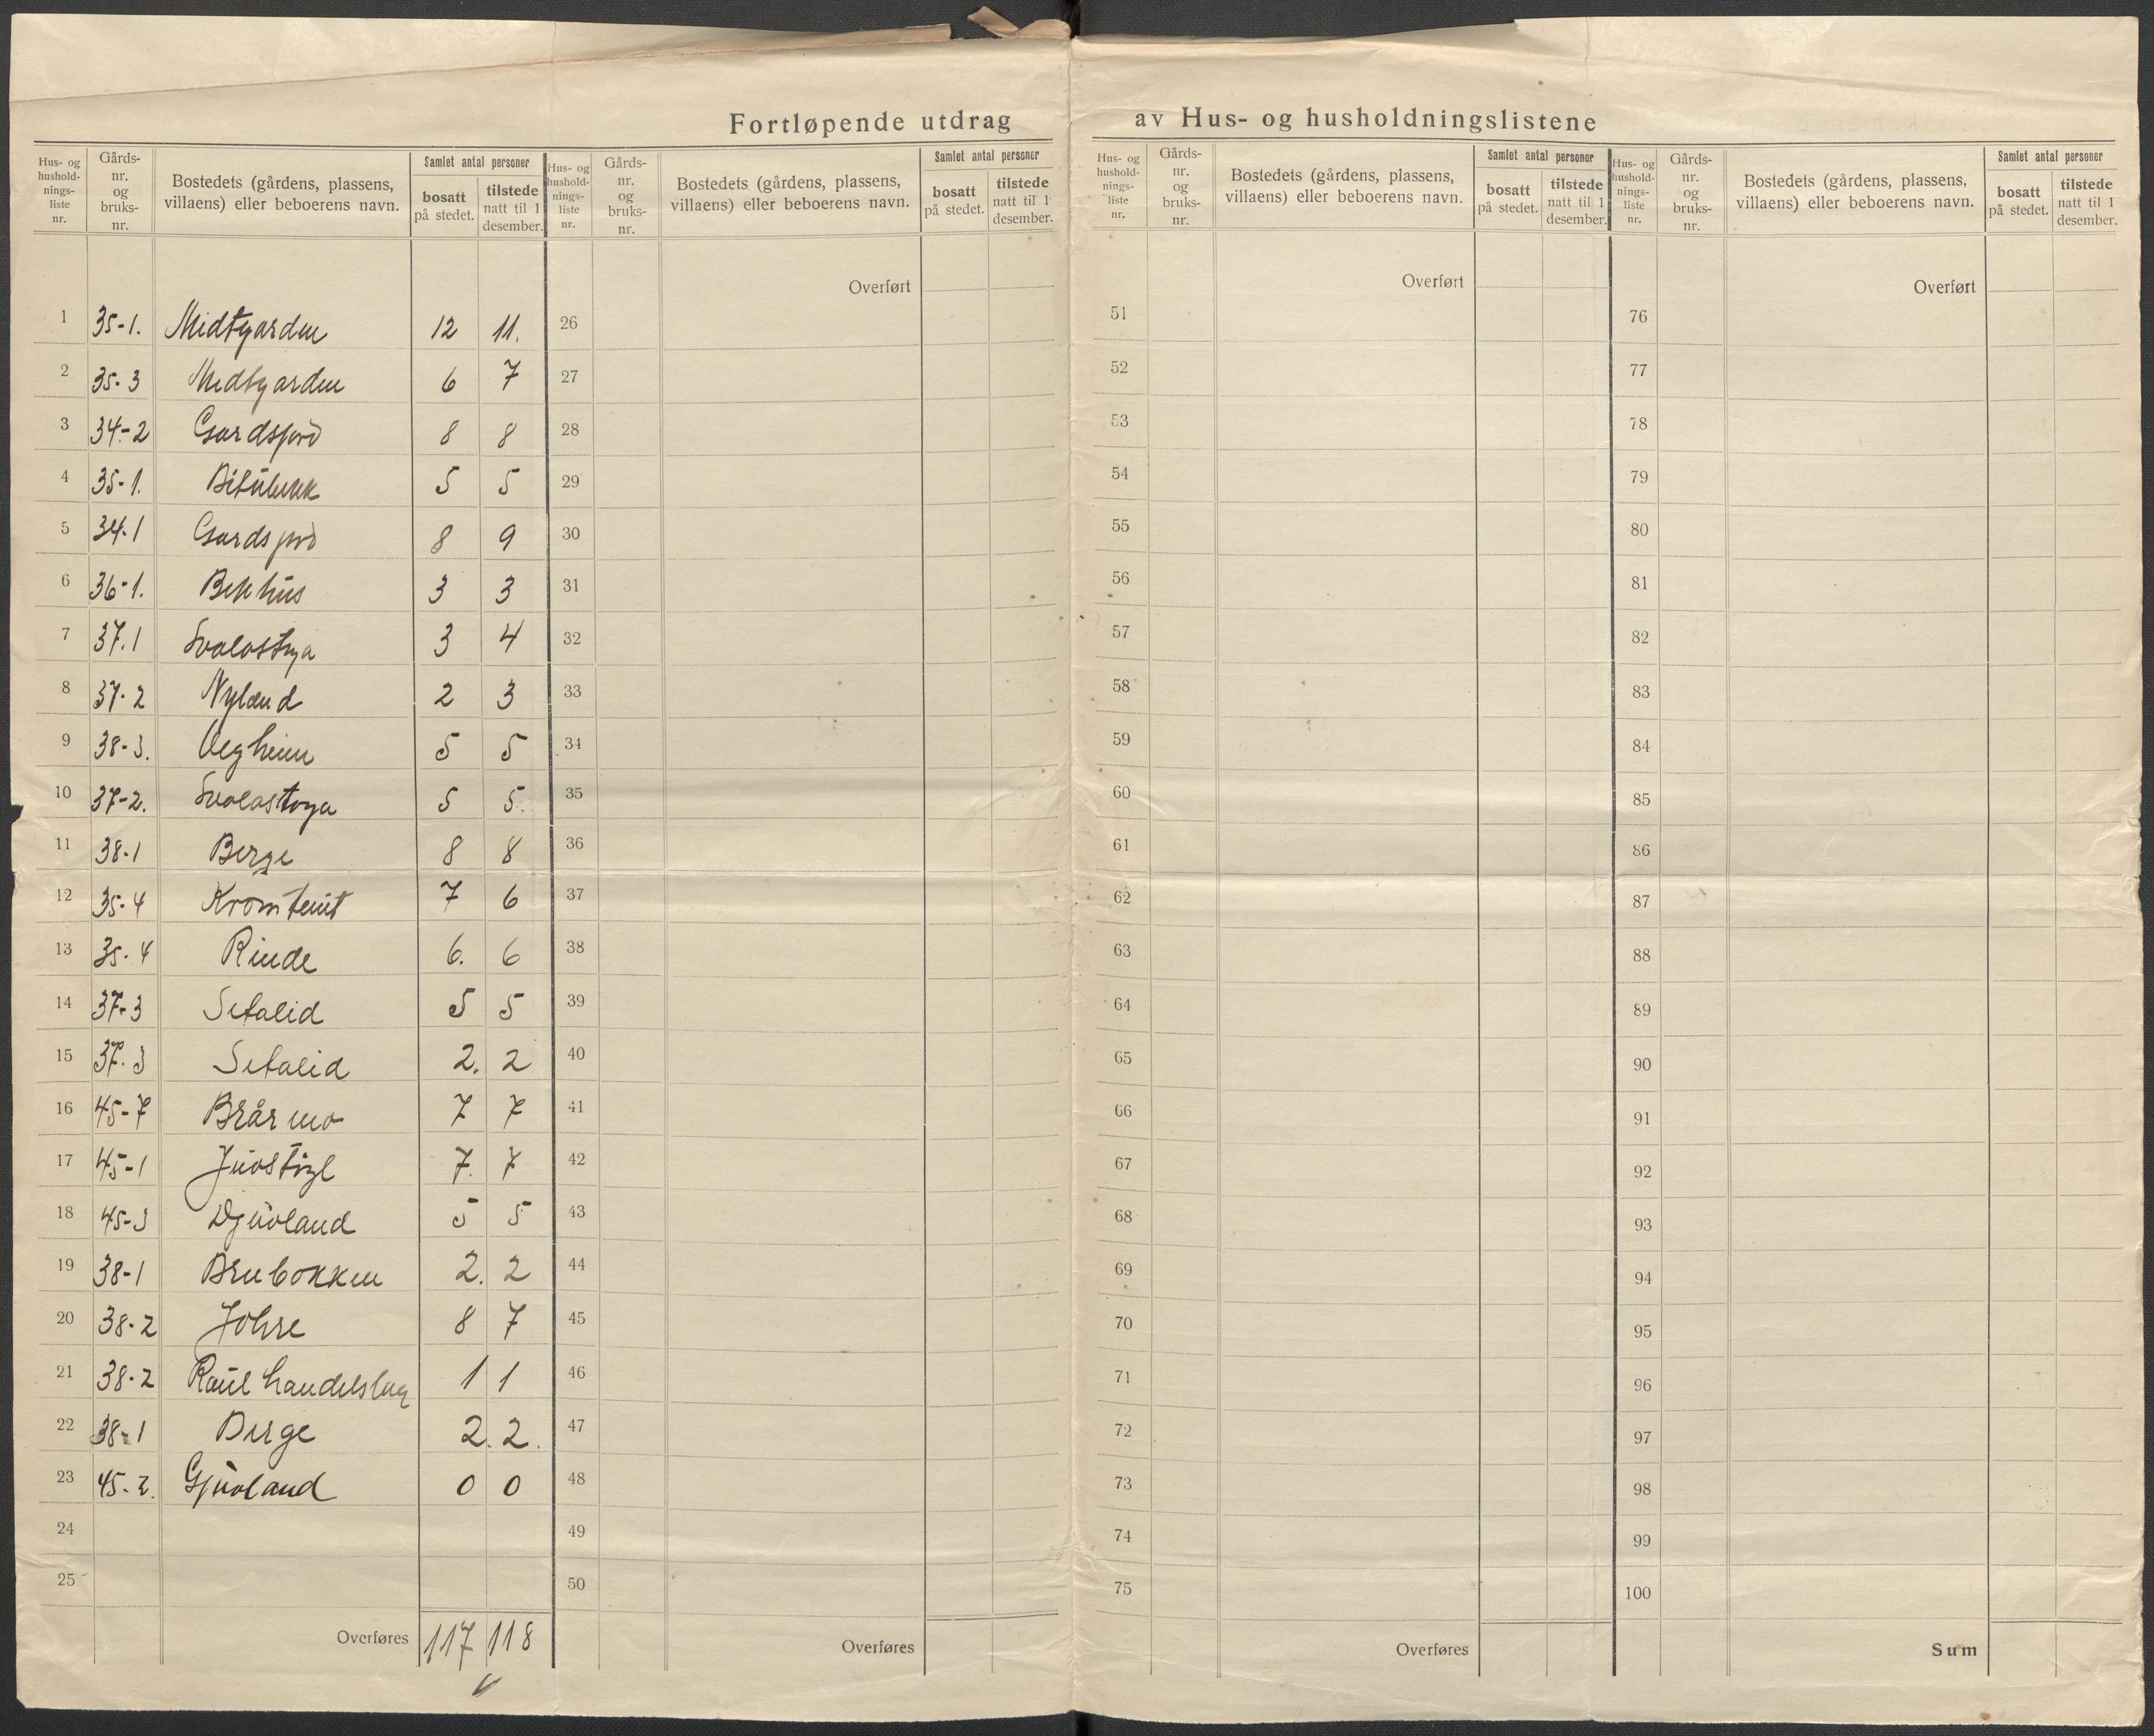 Fortløpende utdrag av Hus- og husholdningslistene
Hus- og hushold-nings-liste nr. Gårds-nr. og bruks-nr. Bostedets (gårdens, plassens, villaens) eller beboerens navn. Samlet antal personer bosatt på stedet. tilstede natt til 1 desember.
Hus- og hushold-nings-liste nr. Gårds-nr. og bruks-nr. Bostedets (gårdens, plassens, villaens) eller beboerens navn. Samlet antal personer bosatt på stedet. tilstede natt til 1 desember.
Hus- og hushold-nings-liste nr. Gårds-nr. og bruks-nr. Bostedets (gårdens, plassens, villaens) eller beboerens navn. Samlet antal personer bosatt på stedet. tilstede natt til 1 desember.
Hus- og hushold-nings-liste nr. Gårds-nr. og bruks-nr. Bostedets (gårdens, plassens, villaens) eller beboerens navn. Samlet antal personer bosatt på stedet. tilstede natt til 1 desember.
Overført Overført Overført
1 35-1. Midtgarden 12 11. 26 51 76
2 35-3 Midtgarden 6 7 27 52 77
3 34-2 Gardsjord 8 8 28 53 78
4 35-1. 5 5 29 54 79
5 34-1 Gardsjord 8 9 30 55 80
6 36-1. Bekhus 3 3 31 56 81
7 37.1 Svalastoga 3 4 32 57 82
8 37-2 Nyland 2 3 33 58 83
9 38-3. Vegheim 5 5 34 59 84
10 37-2. Svalastoga 5 5. 35 60 85
11 38-1 Berge 8 8 36 61 86
12 35-4 Kromteint 7 6 37 62 87
13 35-4 Rinde 6. 6 38 63 88
14 37-3 Setalid 5 5 39 64 89
15 37-3 Setalid 2. 2 40 65 90
16 45-7 Brårmo 7 7 41 66 91
17 45-1 7. 7 42 67 92
18 45-3 Djuvland 5 5 43 68 93
19 38-1 Brubakken 2. 2 44 69 94
20 38-2 8 7 45 70 95
21 38-2 Raul handelslag 1 1 46 71 96
22 38-1 Berge 2. 2. 47 72 97
23 45-2. Gjuvland 0 0 48 73 98
24 49 74 99
25 50 75 100
Overføres 117 118 Overføres Overføres Sum